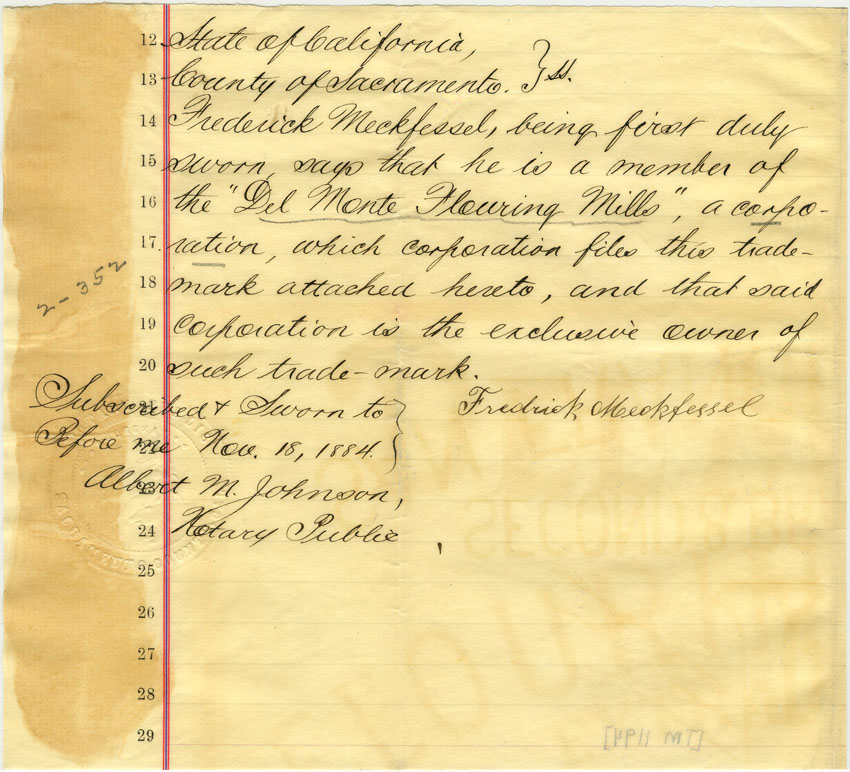 12 State of California,
13 County of Sacramento. } ss.
14 Frederick Meckfessel, being first duly
15 sworn, says that he is a member of
16 the "Del Monte Flouring Mills", a corpo-
17 ration, which corporation files this trade-
18 mark attached hereto, and that said
19 corporation is the exclusive owner of
20 such trade-mark.
2-352
21 Subscribed & Sworn to
Fredrick Meckfessel
22 Before me Nov. 18, 1884. }
23 Albert M. Johnson,
24 Notary Public
25
26
27
28
29
[TM 1199]